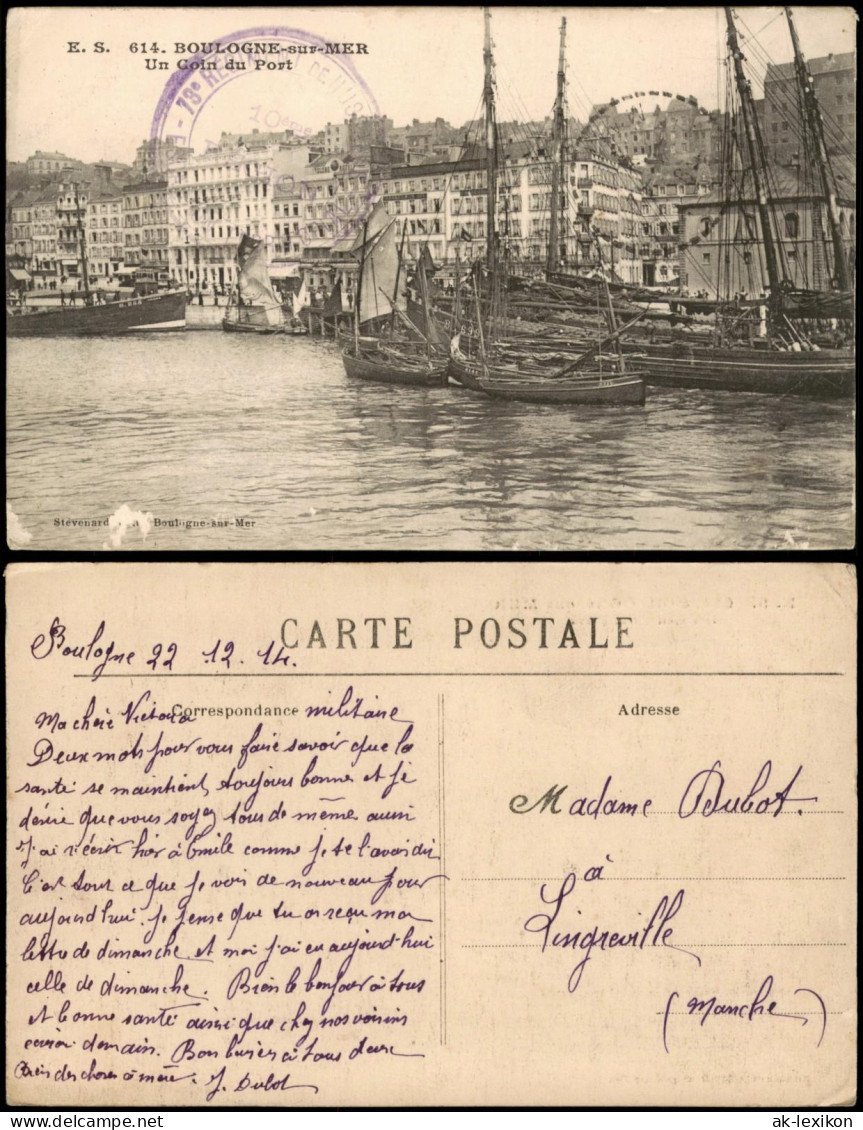 E. S. 614. BOULOGNE-sur-MER
Un Coin du Port
73e
10eme
Stevenard Boulogne-sur-Mer
CARTE POSTALE
Boulogne 22.12.14.
Correspondance militaire
Adresse
Ma chère Victoria
Deux mots pour vous faire savoir que la
santé se maintient toujours bonne et je
désire que vous soyez tous de même aussi
J'ai récrit hier à Emile comme je te l'avais dit
C'est tout ce que je vois de nouveau pour
aujourd'hui. Je pense que tu as reçu ma
lettre de dimanche et moi j'ai eu aujourd'hui
celle de dimanche. Bien le bonjour à tous
et bonne santé ainsi que chez nos voisins
demain. Bon baisers à tous deux
Bien des choses à mère. J. Dubot
Madame Dubot.
à
Lingreville
(Manche)
ak-lexikon